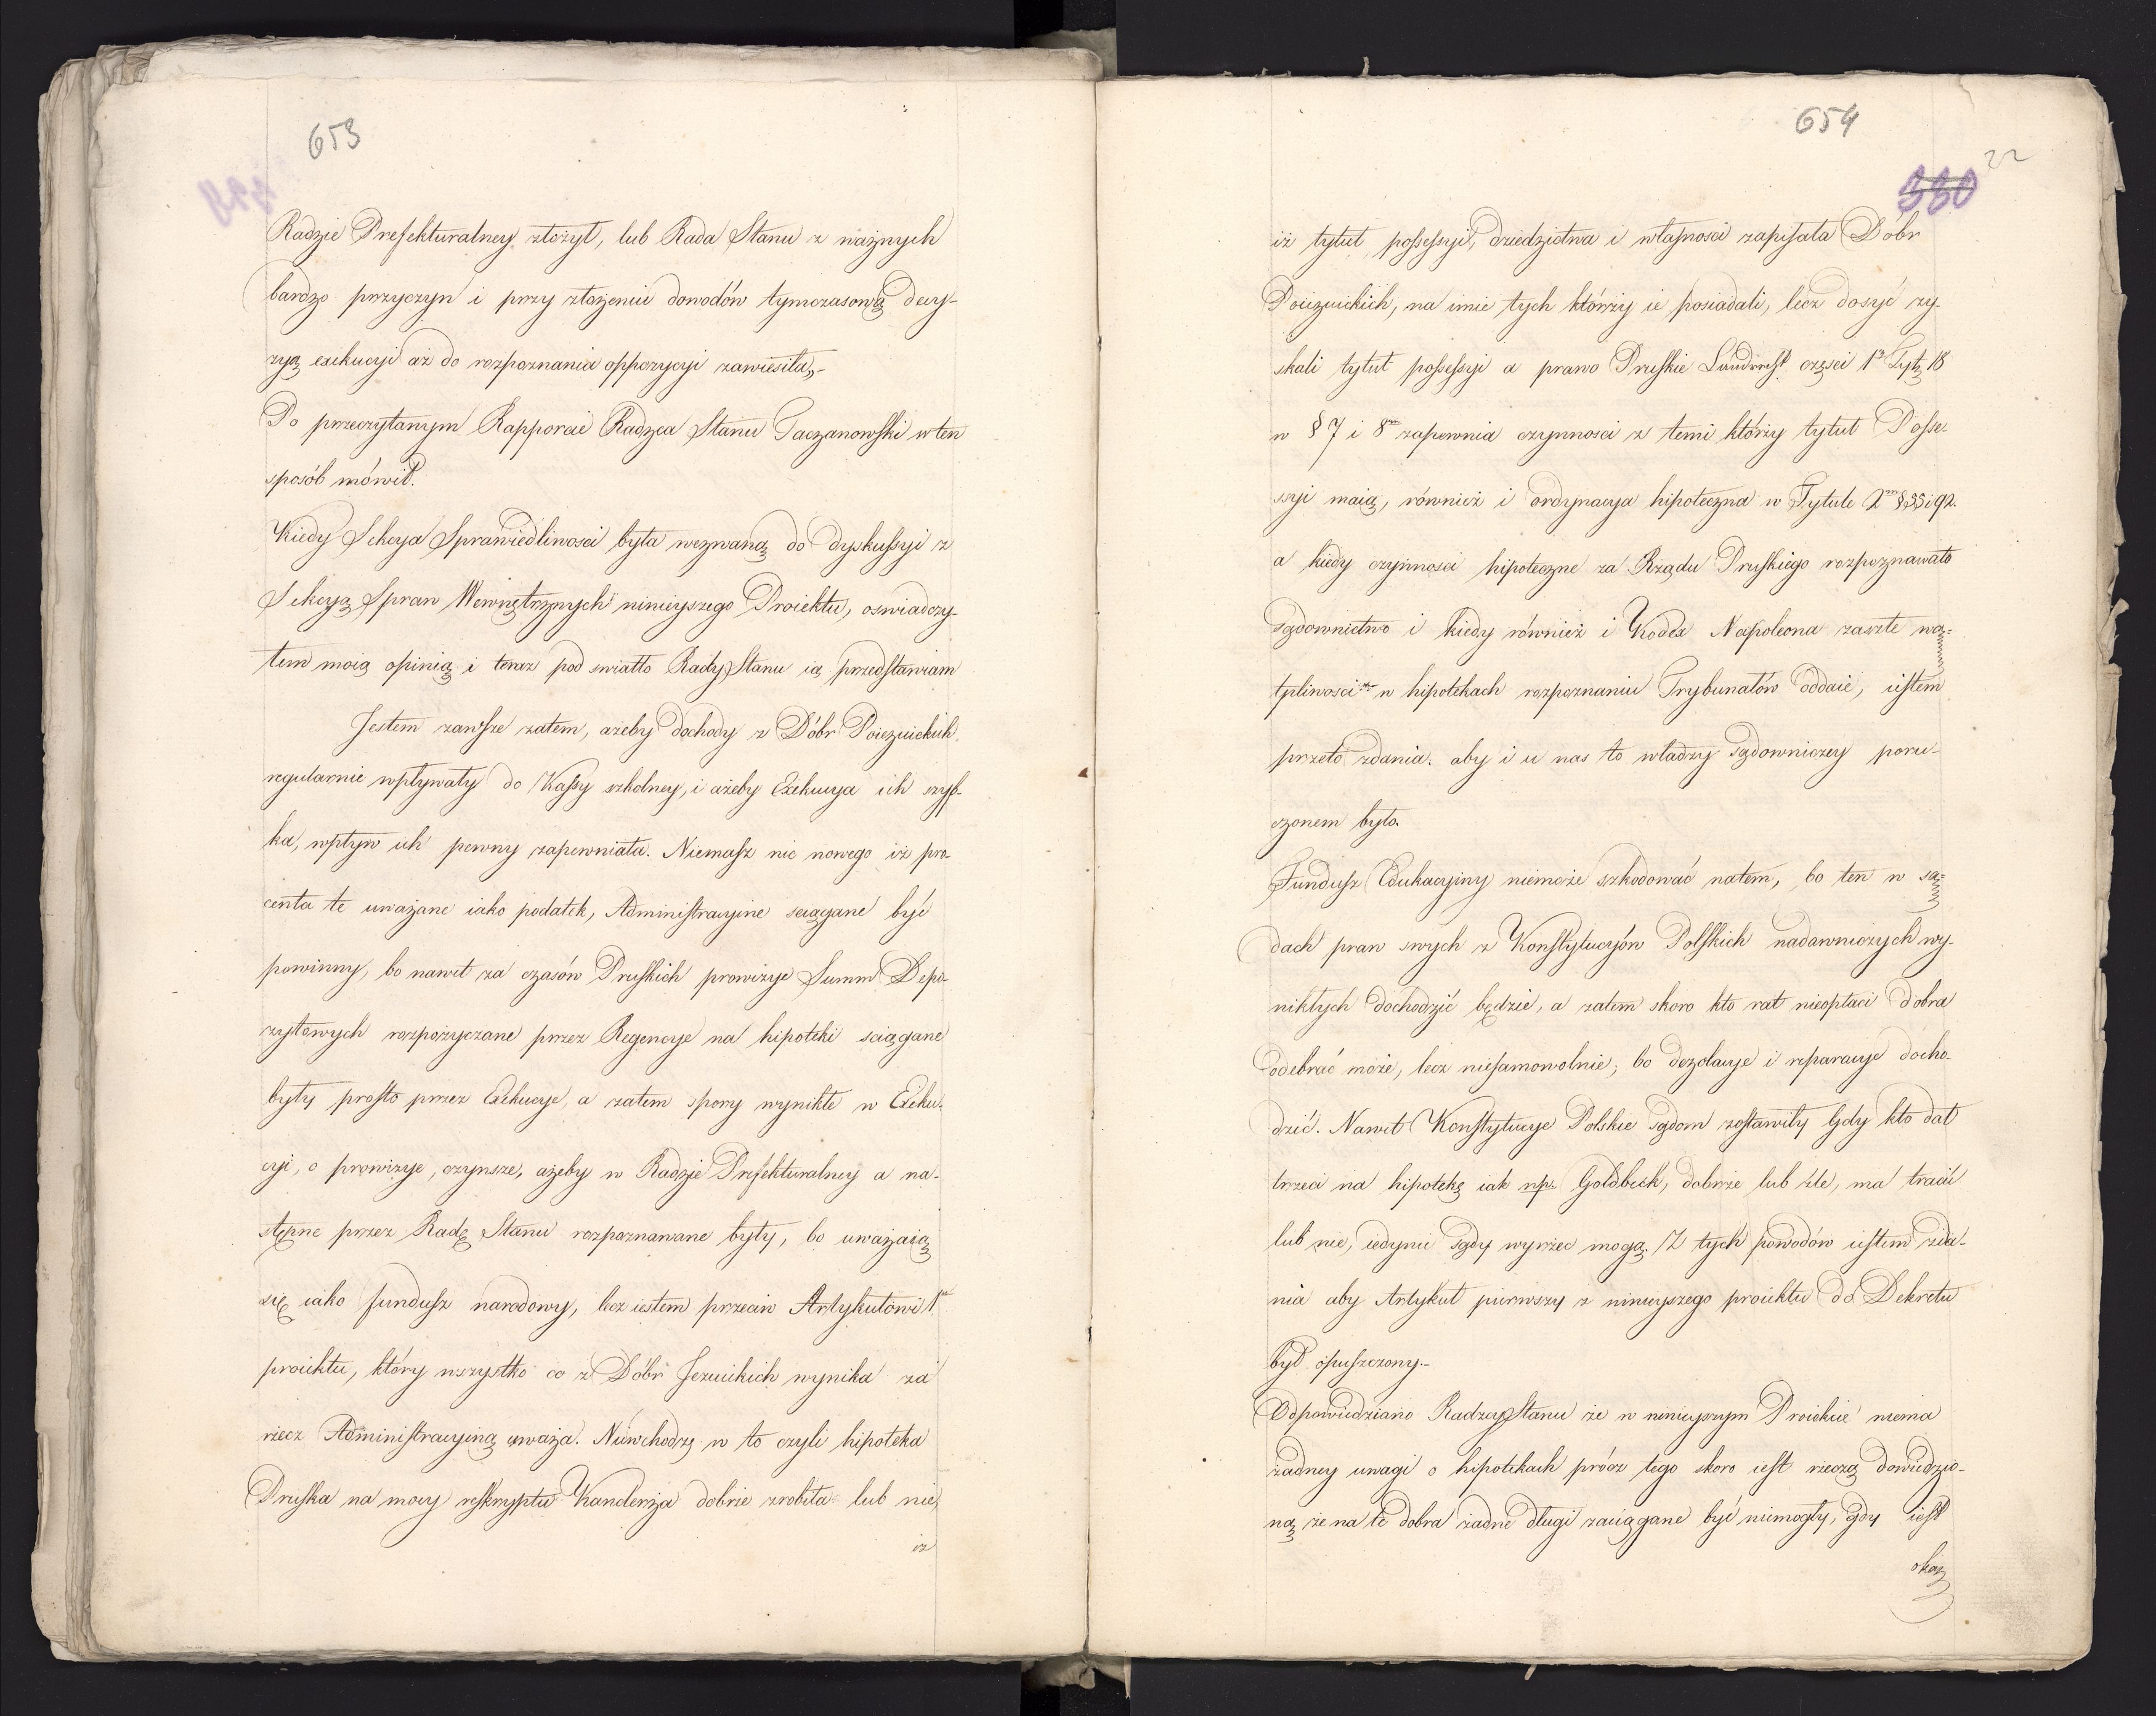 653
Radzie Prefekturalney złożył, lub Rada Stanu z ważnych
bardzo przyczyn i przy złożeniu dowodów tymczasową decy-
zyą exekucyi aż do rozpoznania oppozycyi zawiesiła„-
Po przeczytanym Rapporcie Radzca Stanu Taczanowski w ten
sposób mówił.
Kiedy Sekcya Sprawiedliwosci była wezwaną do dyskussyi z
Sekcyą Spraw Wewnętrznych ninieyszego Proiektu, oswiadczy-
łem moią opinią i teraz pod swiatło Rady Stanu ią przedstawiam
Jestem zawsze zatem, ażeby dochody z Dóbr Poiezuickich
regularnie wpływały do Kassy szkolney, i ażeby Exekucya ich szyb-
ka, wpływ ich pewny zapewniała. Niemasz nic nowego iż pro-
centa te uważane iako podatek, Administracyine sciągane być
powinny, bo nawet za czasów Pruskich prowizye Summ Depo-
zytowych rozpożyczane przez Regencye na hipoteki sciągane
były prosto przez Exekucye, a zatem spory wynikłe w Exeku-
cyi, o prowizye, czynsze, ażeby w Radzie Prefekturalney a na-
stępne przez Radę Stanu rozpoznawane były, bo uważaią
się iako fundusz narodowy, lecz iestem przeciw Artykułowi 1mu
proiektu, który wszystko co z Dóbr Jezuickich wynika za
rzecz Administracyiną uważa. Niewchodzę w to czyli hipoteka
Pruska na mocy reskryptu Kanclerza dobrze zrobiła lub nie,
iż
654
22
330
iż tytuł possessyi, dziedzictwa i własnosci zapisała Dóbr
Poiezuickich, na imie tych którzy ie posiadali, lecz dosyć zy-
skali tytuł possessyi a prawo Pruskie Landrecht częsci 1a Tyt. 18
w § 7 i 8m zapewnia czynnosci z temi którzy tytuł Posse-
ssyi maią, również i ordynacya hipoteczna w Tytule 2m § 55 i 92.
a kiedy czynnosci hipoteczne za Rządu Pruskiego rozpoznawało
Sądownictwo i kiedy również i Kodex Napoleona zaszłe wą-
tpliwosci w hipotekach rozpoznaniu Trybunałów oddaie, iestem
przeto zdania. aby i u nas to władzy sądowniczey poru-
czonem było.
Fundusz Edukacyiny niemoże szkodować natem, bo ten w są-
dach praw swych z Konstytucyów Polskich nadawniczych wy-
nikłych dochodzić będzie, a zatem skoro kto rat nieopłaci dobra
odebrać może, lecz niesamowolnie, bo dezolacye i reparacye docho-
dzić. Nawet Konstytucye Polskie sądom zostawiły Gdy kto dał
trzeci na hipotekę iak np. Goldbeck, dobrze lub źle, ma tracić
lub nie, iedynie sądy wyrzec mogą. Z tych powodów iestem zda-
nia aby Artykuł pierwszy z ninieyszego proiektu do Dekretu
był opuszczony.-
Odpowiedziano Radzcy Stanu że w ninieyszym Proiekcie niema
żadney uwagi o hipotekach prócz tego skoro iest rzeczą dowiedzio-
ną że na te dobra żadne długi zaciągane być niemogły, gdy iest
okaz